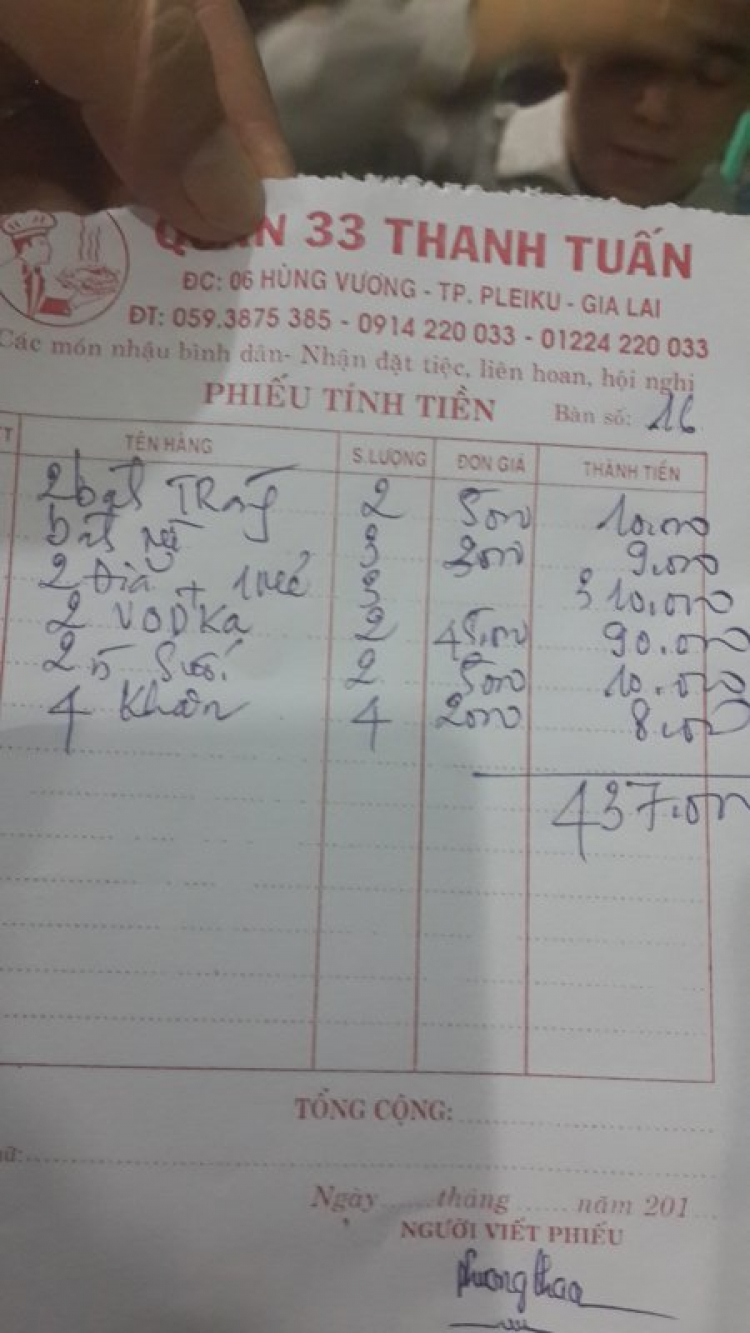 QUÁN 33 THANH TUẤN
ĐC: 06 HÙNG VƯƠNG - TP. PLEIKU - GIA LAI
ĐT: 059.3875 385 - 0914 220 033 - 01224 220 033
Các món nhậu bình dân- Nhận đặt tiệc, liên hoan, hội nghị
PHIẾU TÍNH TIỀN Bàn số: 16
TT TÊN HÀNG S.LƯỢNG ĐƠN GIÁ THÀNH TIỀN
2 bát 2 5000 10.000
bát 3 3000 9.000
2 Đĩa + 3 310.000
2 VODKa 2 45.000 90.000
2 Suối 2 5000 10.000
4 Khăn 4 2000 8.000
437.000
TỔNG CỘNG:
Ngày tháng năm 201
NGƯỜI VIẾT PHIẾU
phuongthao